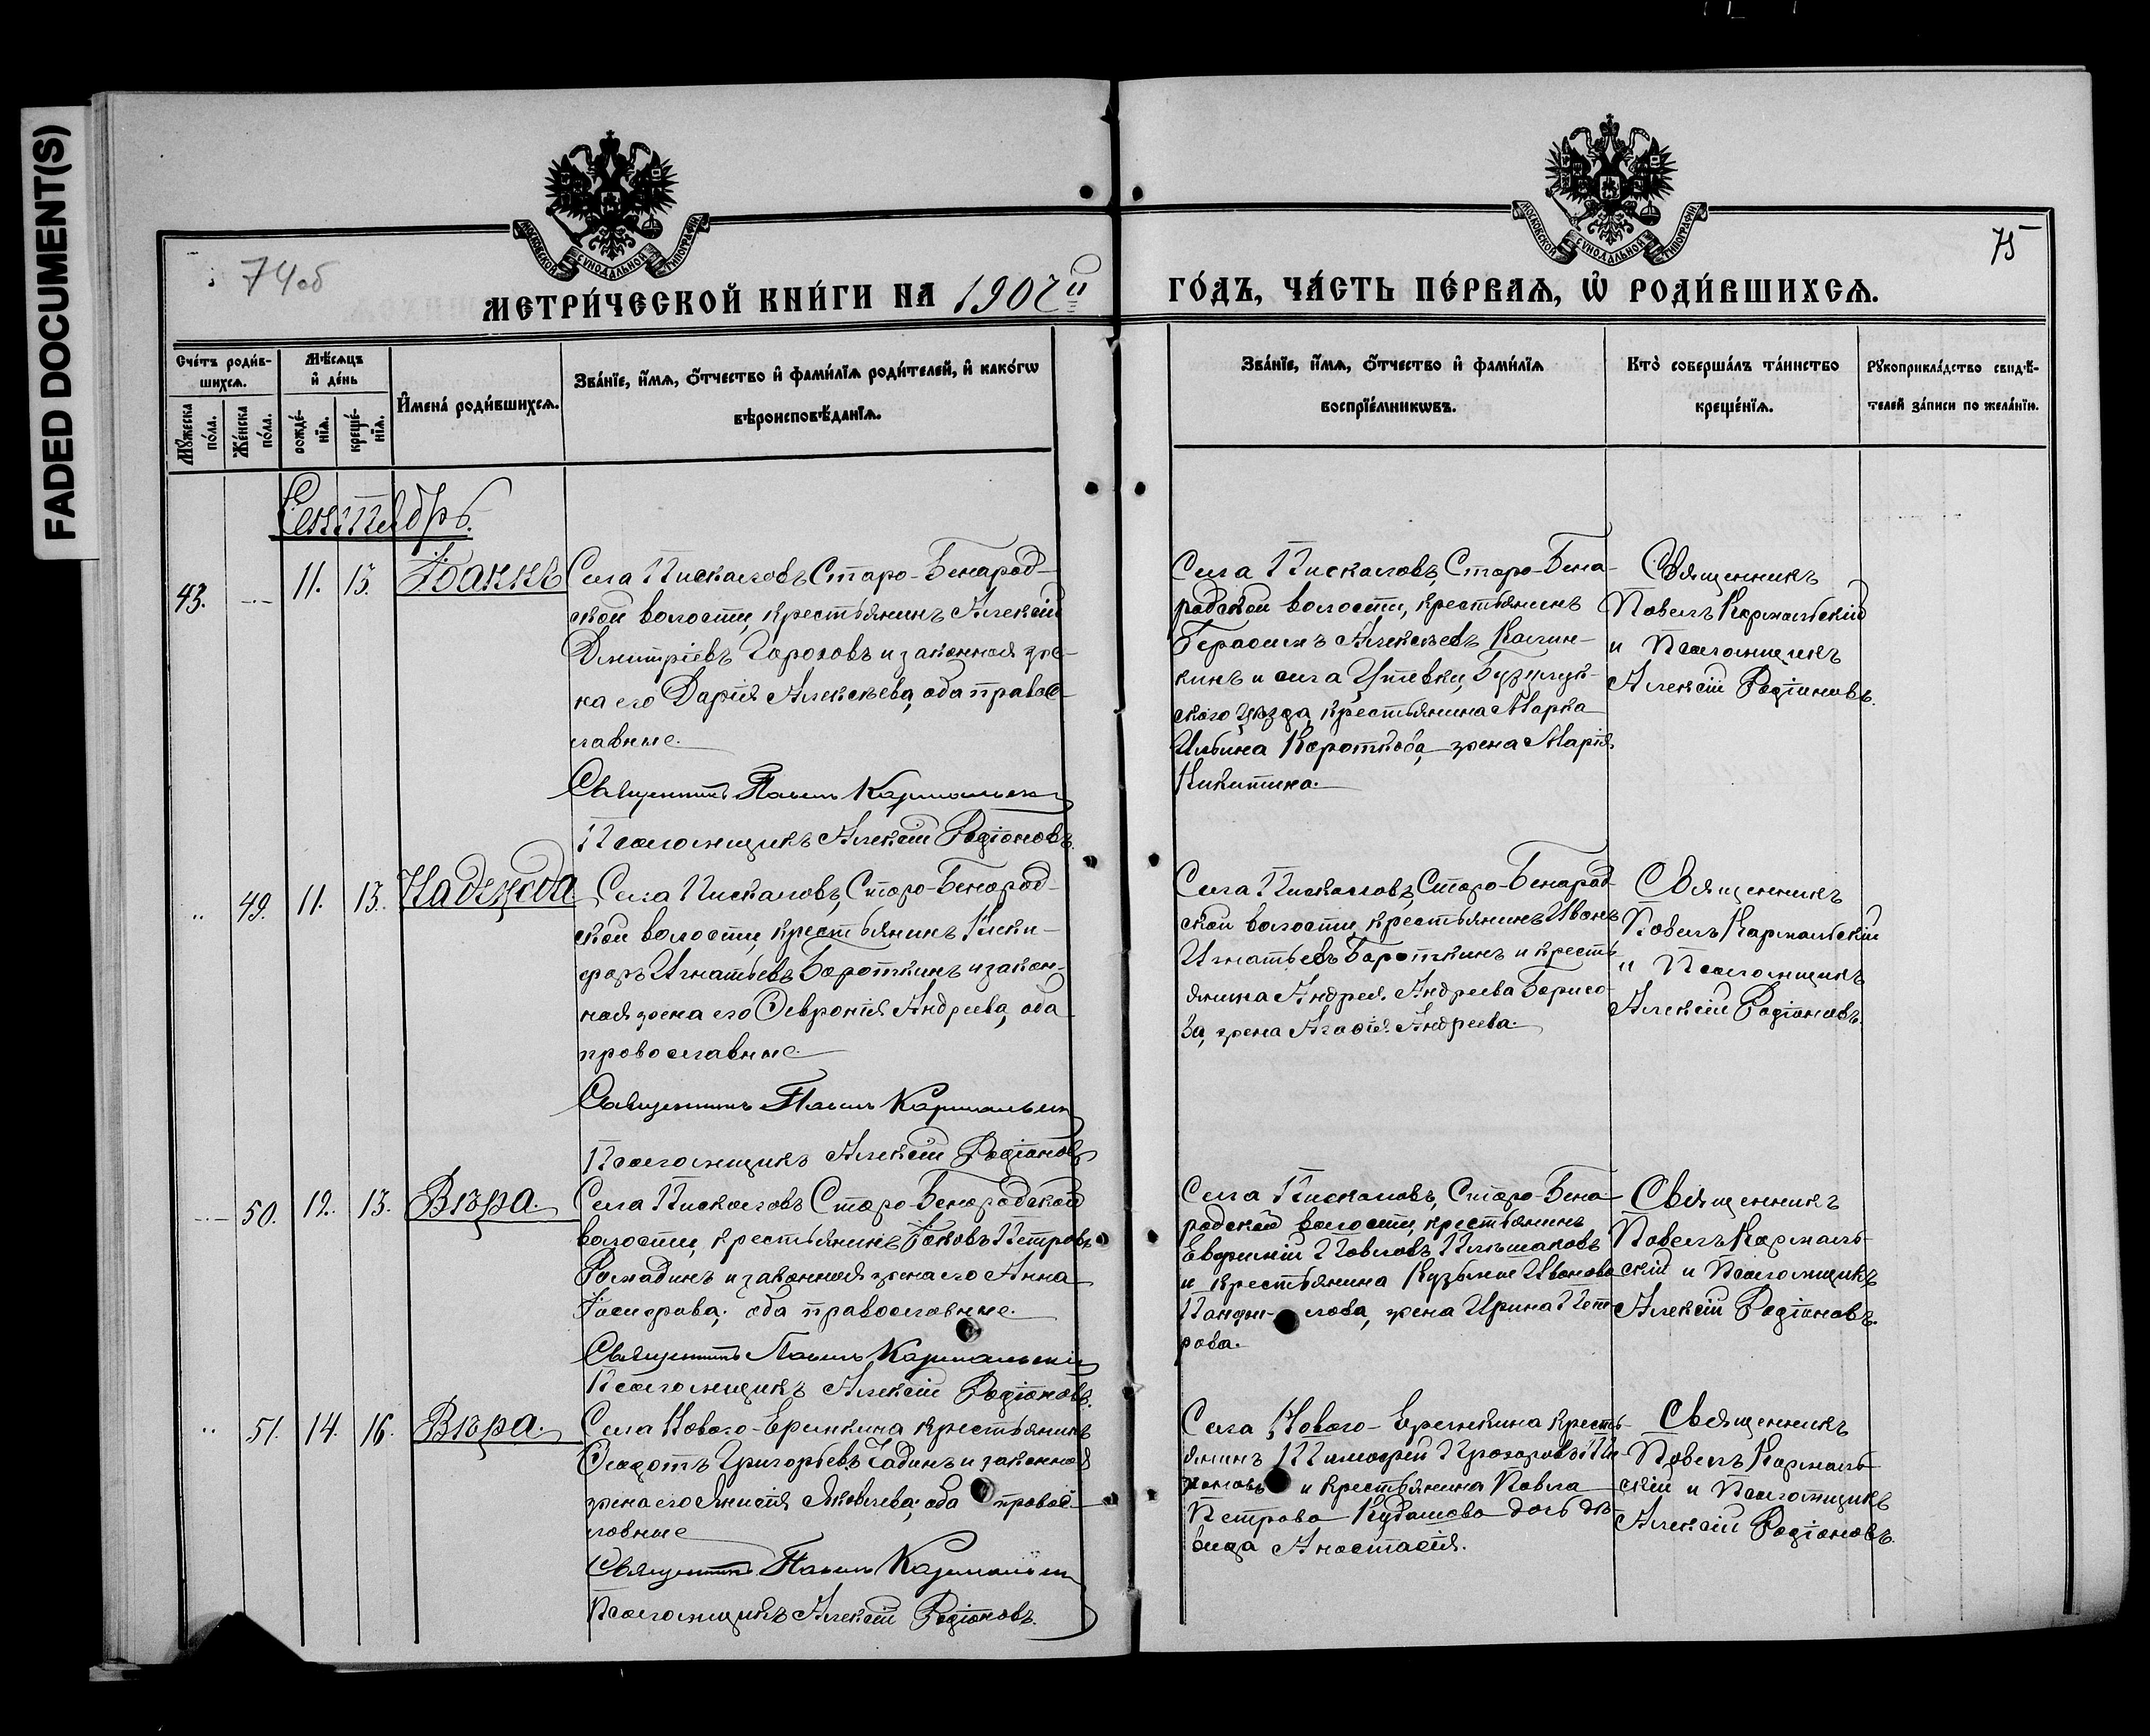 FADED DOCUMENT(S)
74об
75
МОСКОВСКОЙ СУНОДАЛЬНОЙ ТИПОГРАФІИ
МОСКОВСКОЙ СУНОДАЛЬНОЙ ТИПОГРАФІИ
МЕТРИ́ЧЕСКОЙ КНИ́ГИ НА 1907й ГО́ДЪ, ЧА́СТЬ ПЕ́РВАѦ, Ѡ҆ РОДИ́ВШИХСѦ.
Сче́тъ роди́в-
шихсѧ.
Мꙋ́жеска по́ла.
Же́нска по́ла.
Мѣ́сѧцъ
и҆ де́нь
рожде́-
нїѧ.
креще́-
нїѧ.
И҆мена̀ роди́вшихсѧ.
Зва́нїе, и҆́мѧ, ѻ҆́тчество и҆ фами́лїѧ роди́телей, и҆ како́гѡ
вѣроисповѣ́данїѧ.
Зва́нїе, и҆́мѧ, ѻ҆́тчество и҆ фами́лїѧ
воспрїе́мникѡвъ.
Кто̀ соверша́лъ та́инство
креще́нїѧ.
Рꙋкоприкла́дство свидѣ́-
телей за́писи по жела́нїю.
Сентябрь.
43. 11. 13. Іоаннъ
Села Пискаловъ Старо-Бенарад-
ской волости, крестьянинъ Алексій
Дмитріевъ Гороховъ и законная же-
на его Дарія Алексѣева, оба правос-
лавные.
Священникъ Павелъ Кармальскій
Псаломщикъ Алексій Родіоновъ.
Села Пискаловъ, Старо-Бена-
радской волости, крестьянинъ
Герасимъ Алексѣевъ Калин-
кинъ и села Утевки, Бузулук-
скаго уѣзда, крестьянина Марка
Ильина Короткова, жена Марія
Никитина.
Священникъ
Павелъ Кармальскій
и Псаломщикъ
Алексій Родіоновъ.
49. 11. 13. Надежда
Села Пискаловъ, Старо-Бенарад-
ской волости, крестьянинъ Ники-
форъ Игнатьевъ Бороткинъ и закон-
ная жена его Ѳевронія Андреева, оба
православные.
Священникъ Павелъ Кармальскій
Псаломщикъ Алексій Родіоновъ
Села Пискаловъ, Старо-Бенарад-
ской волости, крестьянинъ Иванъ
Игнатьевъ Бороткинъ и кресть-
янина Андрея Андреева Борисо-
ва, жена Агафія Андреева.
Священникъ
Павелъ Кармальскій
и Псаломщикъ
Алексій Родіоновъ.
50. 12. 13. Вѣра.
Села Пискаловъ Старо-Бенарадской
волости, крестьянинъ Іаковъ Петровъ
Рамадинъ и законная жена его Анна
Іосифова; оба православные.
Священникъ Павелъ Кармальскій
Псаломщикъ Алексій Родіоновъ.
Села Пискаловъ, Старо-Бена-
радской волости, крестьянинъ
Павловъ
и крестьянина Кузьмы Иванова
жена Ирина Пет-
рова.
Священникъ
Павелъ Кармаль-
скій и Псаломщикъ
Алексій Родіоновъ.
51. 14. 16. Вѣра.
Села Новаго-Еремкина крестьянинъ
Ѳедотъ Григорьевъ Чадинъ и законная
жена его Анисія Яковлева; оба правос-
лавные
Священникъ Павелъ Кармальскій
Псаломщикъ Алексій Родіоновъ.
Села Новаго-Еремкина кресть-
янинъ Тимофей Прохоровъ
и крестьянина Павла
Петрова Кудашова дочь дѣ-
вица Анастасія.
Священникъ
Павелъ Кармаль-
скій и Псаломщикъ
Алексій Родіоновъ.